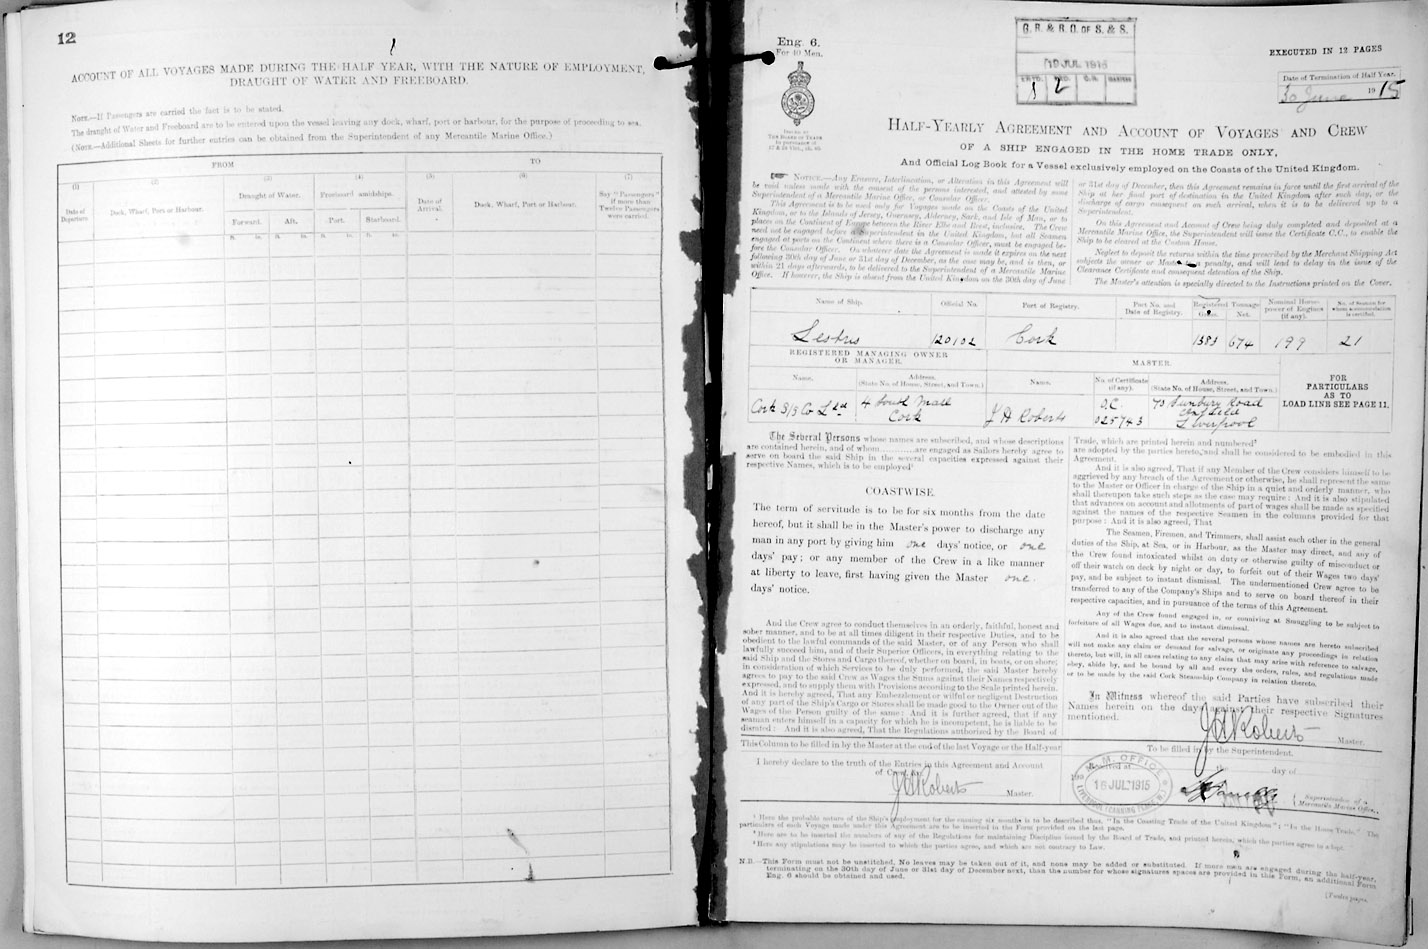 12
1
ACCOUNT OF ALL VOYAGES MADE DURING THE HALF YEAR, WITH THE NATURE OF EMPLOYMENT,
DRAUGHT OF WATER AND FREEBOARD.
NOTE.—If Passengers are carried the fact is to be stated.
The draught of Water and Freeboard are to be entered upon the vessel leaving any dock, wharf, port or harbour, for the purpose of proceeding to sea.
(NOTE.—Additional Sheets for further entries can be obtained from the Superintendent of any Mercantile Marine Office.)
FROM
TO
(1) (2) (3) (4) (5) (6) (7)
Date of Departure.
Dock, Wharf, Port or Harbour.
Draught of Water.
Freeboard amidships.
Date of Arrival.
Dock, Wharf, Port or Harbour.
Say "Passengers"
if more than
Twelve Passengers
were carried.
Forward. Aft. Port. Starboard.
ft. in. ft. in. ft. in. ft. in.
Eng. 6.
For 40 Men.
ISSUED BY
THE BOARD OF TRADE
G. R. & R. O. OF S. & S.
19 JUL 1915
1 2
EXECUTED IN 12 PAGES
Date of Termination of Half Year.
30 June 1915
HALF-YEARLY AGREEMENT AND ACCOUNT OF VOYAGES AND CREW
OF A SHIP ENGAGED IN THE HOME TRADE ONLY,
And Official Log Book for a Vessel exclusively employed on the Coasts of the United Kingdom.
NOTICE.—Any Erasure, Interlineation, or Alteration in this Agreement will
be void unless made with the consent of the persons interested, and attested by some
Superintendent of a Mercantile Marine Office, or Consular Officer.
This Agreement is to be used only for Voyages made on the Coasts of the United
Kingdom, or to the Islands of Jersey, Guernsey, Alderney, Sark, and Isle of Man, or to
places on the Continent of Europe between the River Elbe and Brest, inclusive. The Crew
need not be engaged before a Superintendent in the United Kingdom, but all Seamen
engaged at ports on the Continent where there is a Consular Officer, must be engaged be-
fore the Consular Officer. On whatever date the Agreement is made it expires on the next
following 30th day of June or 31st day of December, as the case may be, and is then, or
within 21 days afterwards, to be delivered to the Superintendent of a Mercantile Marine
Office. If however, the Ship is absent from the United Kingdom on the 30th day of June
or 31st day of December, then this Agreement remains in force until the first arrival of the
Ship at her final port of destination in the United Kingdom after such day, or the
discharge of cargo consequent on such arrival, when it is to be delivered up to a
Superintendent.
On this Agreement and Account of Crew being duly completed and deposited at a
Mercantile Marine Office, the Superintendent will issue the Certificate C.C., to enable the
Ship to be cleared at the Custom House.
Neglect to deposit the returns within the time prescribed by the Merchant Shipping Act
subjects the owner or Master to a penalty, and will lead to delay in the issue of the
Clearance Certificate and consequent detention of the Ship.
The Master's attention is specially directed to the Instructions printed on the Cover.
Name of Ship. Official No. Port of Registry. Port No. and Date of Registry. Registered Tonnage Gross. Net. Nominal Horse-power of Engines (if any). No. of Seamen for whom accommodation is certified.
Lestris 120102 Cork 1384 674 199 21
REGISTERED MANAGING OWNER
OR MANAGER.
MASTER.
Name. Address. (State No. of House, Street, and Town.) Name. No. of Certificate (if any). Address. (State No. of House, Street, and Town.)
FOR
PARTICULARS
AS TO
LOAD LINE SEE PAGE 11.
Cork S/S Co Ltd 4 South Mall Cork J H Roberts O.C. 025743 73 Sunbury Road Anfield Liverpool
The Several Persons whose names are subscribed, and whose descriptions
are contained herein, and of whom..........are engaged as Sailors hereby agree to
serve on board the said Ship in the several capacities expressed against their
respective Names, which is to be employed¹
COASTWISE.
The term of servitude is to be for six months from the date
hereof, but it shall be in the Master's power to discharge any
man in any port by giving him one days' notice, or one
days' pay; or any member of the Crew in a like manner
at liberty to leave, first having given the Master one
days' notice.
And the Crew agree to conduct themselves in an orderly, faithful, honest and
sober manner, and to be at all times diligent in their respective Duties, and to be
obedient to the lawful commands of the said Master, or of any Person who shall
lawfully succeed him, and of their Superior Officers, in everything relating to the
said Ship and the Stores and Cargo thereof, whether on board, in boats, or on shore;
in consideration of which Services to be duly performed, the said Master hereby
agrees to pay to the said Crew as Wages the Sums against their Names respectively
expressed, and to supply them with Provisions according to the Scale printed herein.
And it is hereby agreed, That any Embezzlement or wilful or negligent Destruction
of any part of the Ship's Cargo or Stores shall be made good to the Owner out of the
Wages of the Person guilty of the same: And it is further agreed, that if any
seaman enters himself in a capacity for which he is incompetent, he is liable to be
disrated: And it is also agreed, That the Regulations authorized by the Board of
Trade, which are printed herein and numbered²
are adopted by the parties hereto, and shall be considered to be embodied in this
Agreement.
And it is also agreed, That if any Member of the Crew considers himself to be
aggrieved by any breach of the Agreement or otherwise, he shall represent the same
to the Master or Officer in charge of the Ship in a quiet and orderly manner, who
shall thereupon take such steps as the case may require: And it is also stipulated
that advances on account and allotments of part of wages shall be made as specified
against the names of the respective Seamen in the columns provided for that
purpose: And it is also agreed, That
The Seamen, Firemen, and Trimmers, shall assist each other in the general
duties of the Ship, at Sea, or in Harbour, as the Master may direct, and any of
the Crew found intoxicated whilst on duty or otherwise guilty of misconduct or
off their watch on deck by night or day, to forfeit out of their Wages two days'
pay, and be subject to instant dismissal. The undermentioned Crew agree to be
transferred to any of the Company's Ships and to serve on board thereof in their
respective capacities, and in pursuance of the terms of this Agreement.
Any of the Crew found engaged in, or conniving at Smuggling to be subject to
forfeiture of all Wages due, and to instant dismissal.
And it is also agreed that the several persons whose names are hereto subscribed
will not make any claim or demand for salvage, or originate any proceedings in relation
thereto, but will, in all cases relating to any claim that may arise with reference to salvage,
obey, abide by, and be bound by all and every the orders, rules, and regulations made
or to be made by the said Cork Steam-ship Company in relation thereto.
In Witness whereof the said Parties have subscribed their
Names herein on the days against their respective Signatures
mentioned.
J H Roberts Master.
This Column to be filled in by the Master at the end of the last Voyage or the Half-year
I hereby declare to the truth of the Entries in this Agreement and Account
of Crew, &c.
J H Roberts Master.
To be filled in by the Superintendent.
M. M. OFFICE
16 JUL 1915
the day of
Superintendent of a
Mercantile Marine Office.
¹ Here the probable nature of the Ship's employment for the ensuing six months is to be described thus, "In the Coasting Trade of the United Kingdom"; "In the Home Trade." The
particulars of each Voyage made under this Agreement are to be inserted in the Form provided on the last page.
² Here are to be inserted the numbers of any of the Regulations for maintaining Discipline issued by the Board of Trade, and printed herein, which the parties agree to adopt.
³ Here any stipulations may be inserted to which the parties agree, and which are not contrary to Law.
N.B.—This Form must not be unstitched. No leaves may be taken out of it, and none may be added or substituted. If more men are engaged during the half-year,
terminating on the 30th day of June or 31st day of December next, than the number for whose signatures spaces are provided in this Form, an additional Form
Eng. 6 should be obtained and used.